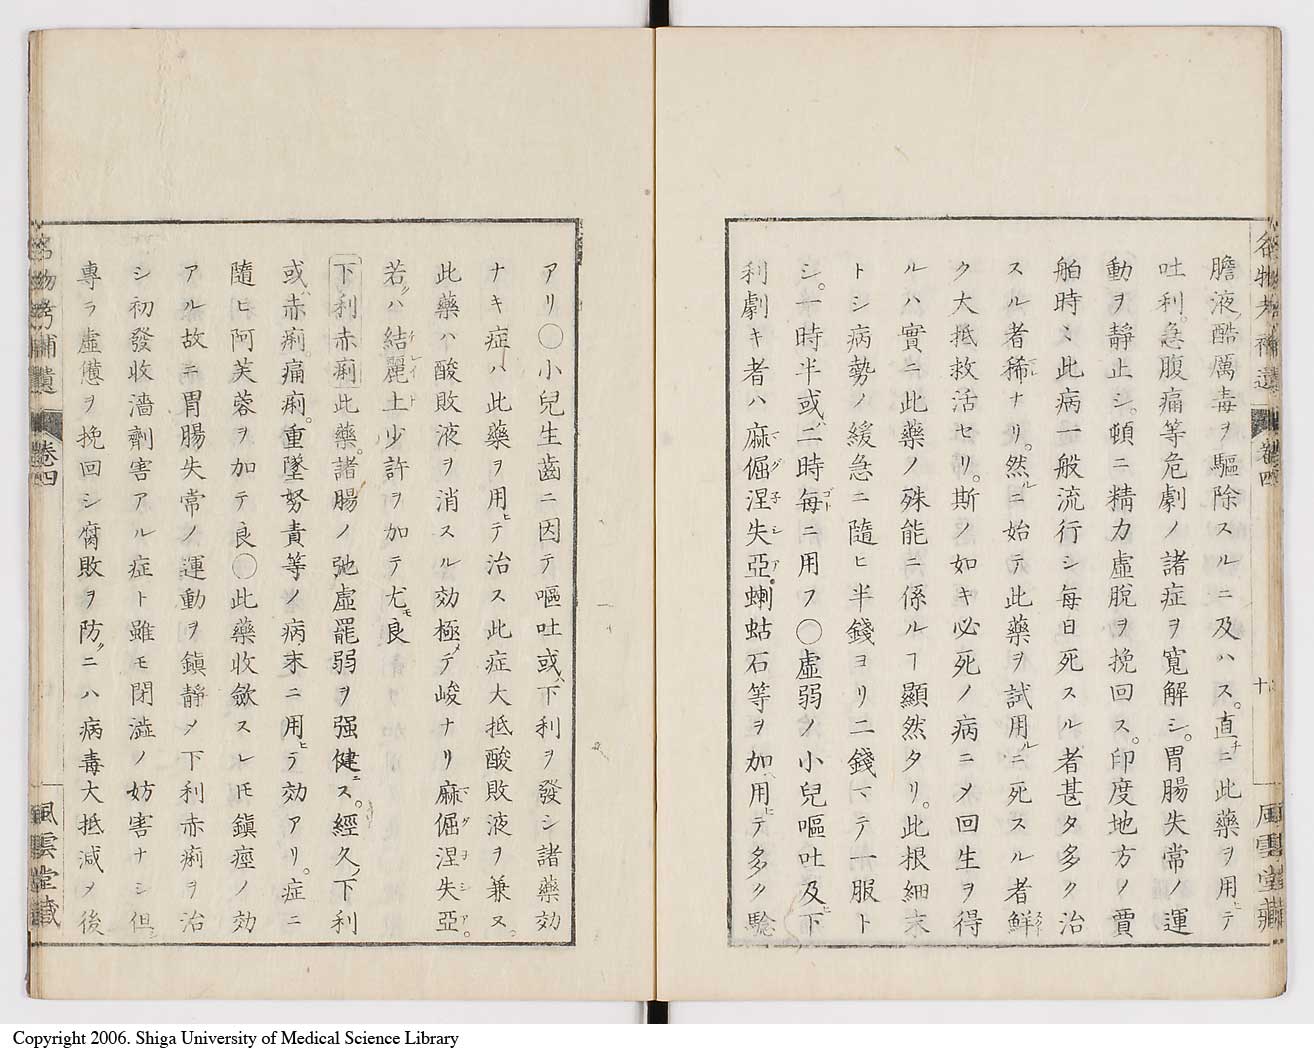 膽液酷厲毒ヲ驅除スルニ及ハス。直チニ此藥ヲ用ヒテ
吐利。急腹痛等危劇ノ諸症ヲ寬解シ。胃腸失常ノ運
動ヲ靜止シ。頓ニ精力虛脫ヲ挽回ス。印度地方ノ賈
舶時〻此病一般流行シ每日死スル者甚タ多ク治
スル者稀ナリ。然ルニ始テ此藥ヲ試用ルニ死スル者鮮
ク大抵救活セリ。斯ノ如キ必死ノ病ニメ回生ヲ得
ルハ實ニ此藥ノ殊能ニ係ルヿ顯然タリ。此根細末
トシ病勢ノ緩急ニ隨ヒ半錢ヨリ二錢マテ一服ト
シ。一時半或ハ二時每ニ用フ〇虛弱ノ小兒嘔吐及ヒ下
利劇キ者ハ麻倔涅失亞。蝲蛄石等ヲ加ヘ用ヒテ多ク驗
アリ〇小兒生齒ニ因テ嘔吐或ハ下利ヲ發シ諸藥効
ナキ症ハ此藥ヲ用ヒテ治ス此症大抵酸敗液ヲ兼ヌ。
此藥ハ酸敗液ヲ消スル効極メテ峻ナリ麻倔涅失亞。
若クハ結麗土少許ヲ加テ尤モ良
下利赤痢此藥。諸腸ノ弛虛罷弱ヲ强健ニス。經久ノ下利
或ハ赤痢。痛痢。重墜努責等ノ病末ニ用ヒテ効アリ。症ニ
隨ヒ阿芙蓉ヲ加テ良〇此藥收斂スレ𪜈鎭痙ノ効
アル故ニ胃腸失常ノ運動ヲ鎭靜メ下利赤痢ヲ治
シ初發收濇劑害アル症ト雖モ閉澁ノ妨害ナシ但シ
專ラ虛憊ヲ挽回シ腐敗ヲ防クニハ病毒大抵減メ後
名物考補遺
卷四
十
風雲堂藏
名物考補遺
卷四
風雲堂藏
Copyright 2006. Shiga University of Medical Science Library